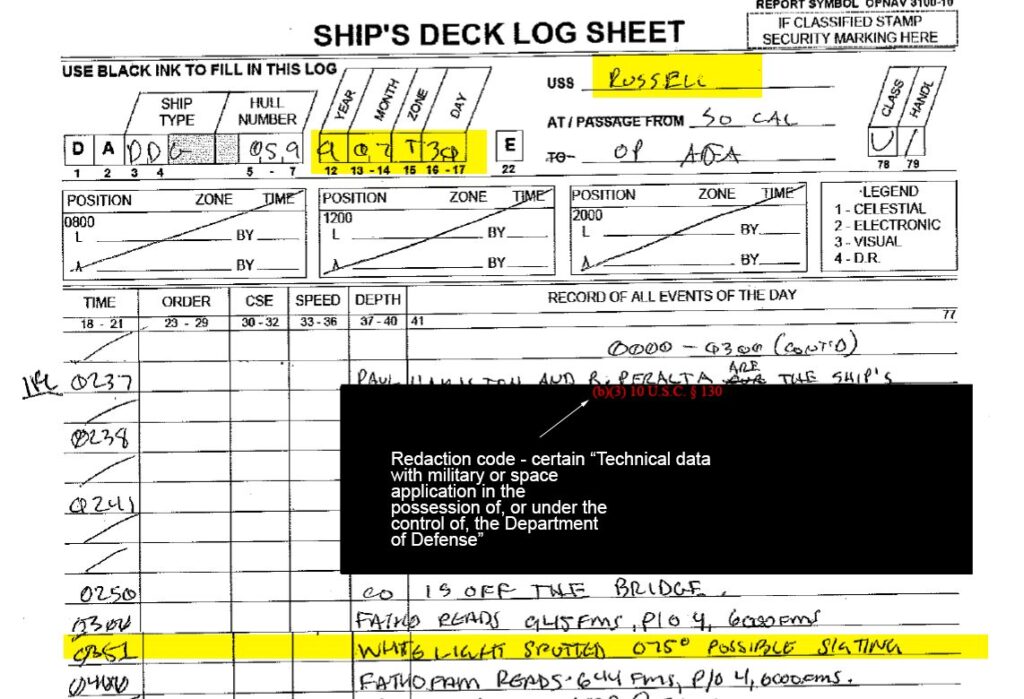 REPORT SYMBOL OPNAV 3100-10
IF CLASSIFIED STAMP
SECURITY MARKING HERE
SHIP'S DECK LOG SHEET
USE BLACK INK TO FILL IN THIS LOG
SHIP TYPE
HULL NUMBER
YEAR MONTH ZONE DAY
USS RUSSELL
CLASS HANDL
AT / PASSAGE FROM SO CAL
TO OP AREA
D A DDG 059 9 07 T 30 E U /
1 2 3 4 5 - 7 12 13 - 14 15 16 - 17 22 78 79
POSITION ZONE TIME POSITION ZONE TIME POSITION ZONE TIME
0800 1200 2000
L BY L BY L BY
λ BY λ BY λ BY
LEGEND
1 - CELESTIAL
2 - ELECTRONIC
3 - VISUAL
4 - D.R.
TIME ORDER CSE SPEED DEPTH RECORD OF ALL EVENTS OF THE DAY
18 - 21 23 - 29 30 - 32 33 - 36 37 - 40 41 77
0000 - 0300 (CONT'D)
0237 PAUL HAMILTON AND R. PERALTA ARE THE SHIP'S
(b)(3) 10 U.S.C. § 130
0238
Redaction code - certain “Technical data
with military or space
application in the
possession of, or under the
control of, the Department
of Defense”
0241
0250 CO IS OFF THE BRIDGE.
0300 FATHO READS 945 FMS, P/O 4, 6000FMS
0351 WHITE LIGHT SPOTTED 075° POSSIBLE SIGTING
0400 FATHOFAM READS 644 FMS, P/O 4, 6000FMS.